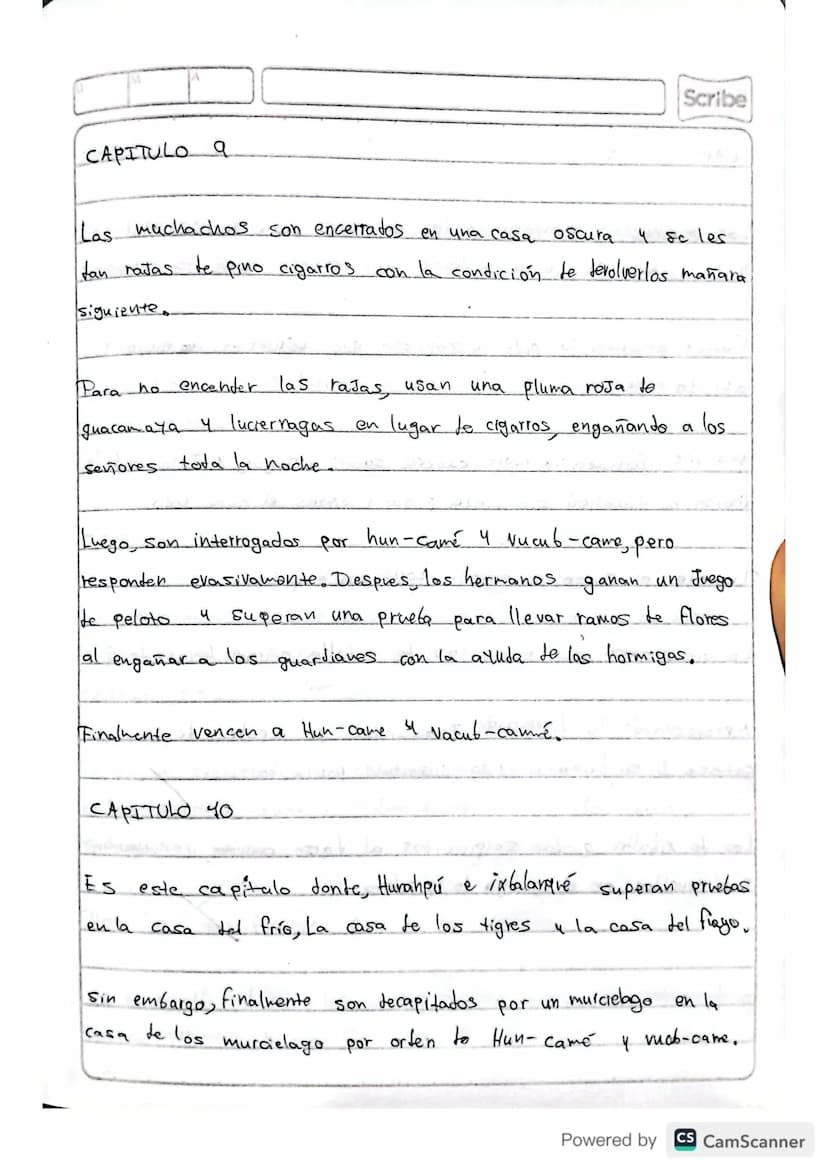 Scribe
CAPITULO 9
Los muchachos son encerrados en una casa oscura y se les
dan rajas de pino cigarros con la condición de devolverlos mañana
siguiente.
Para no encender las rajas, usan una pluma roja de
guacamaya y luciernagas en lugar de cigarros, engañando a los
señores toda la noche.
Luego, son interrogados por hun-camé y Vucub-came, pero
responden evasivamente. Despues, los hermanos ganan un Juego
de peloto y superan una prueba para llevar ramos de flores
al engañar a los guardianes con la ayuda de las hormigas.
Finalmente vencen a Hun-came y Vacub-camé.
CAPITULO 10
Es este capitulo donde, Hunahpú e ixbalanqué superan pruebas
en la casa del frío, La casa de los tigres y la casa del fuego.
sin embargo, finalmente son decapitados por un murcielago en la
casa de los murcielago por orden de Hun-camé y vucb-came.
Powered by CS CamScanner